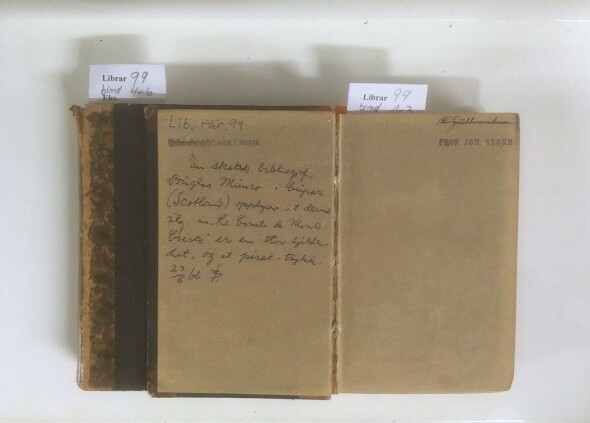 Librar 99
bind 4-6
Eks.
Librar 99
bind 1-3
Lib. rar. 99
En skotsk bibliograf,
Douglas Munro i Cupar
(Scotland) opplyser at denne
utg. av "Le Comte de Monte
Cristo" er en stor sjelden-
het, og et pirat-trykk.
23/8 66
PROF JOH STORM